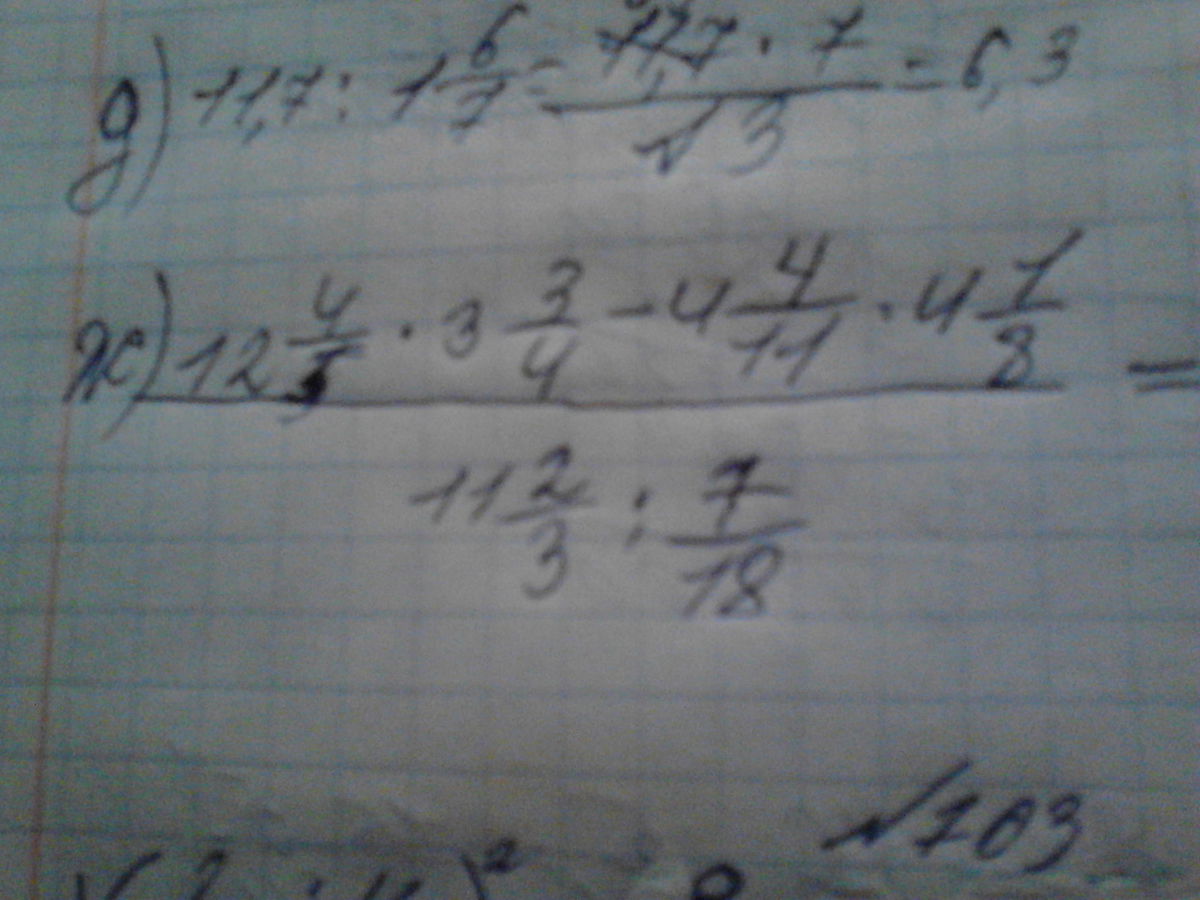 д) 11,7 : 1 6/7 = 11,7 · 7 / 13 = 6,3
ж) 12 4/5 · 3 3/4 - 4 4/11 · 4 1/8 =
11 2/3 : 7/18
№103